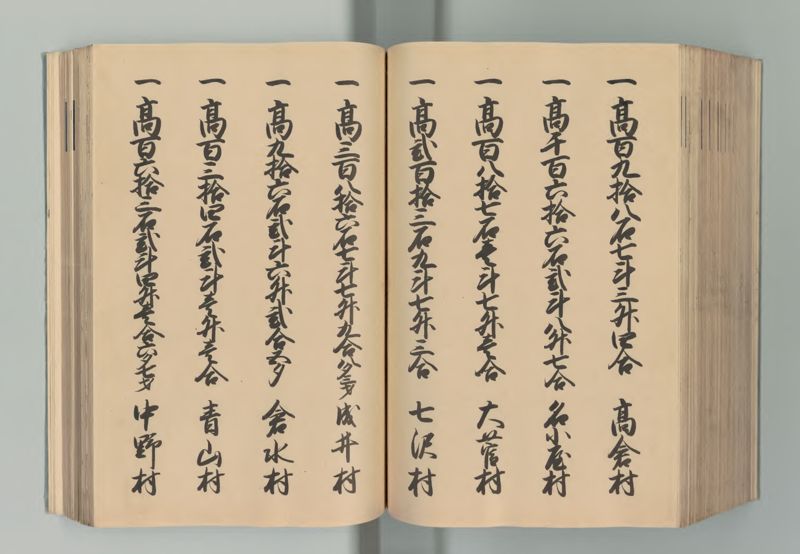 一 髙百九拾八石七斗三升四合 髙倉村
一 髙千百六拾六石弐斗八升七合 名小屋村
一 髙百八拾七石壱斗七升壱合 大菅村
一 髙弐百拾三石九斗七升三合 七沢村
一 髙三百八拾六石七斗七升九合八夕 成井村
一 髙九拾六石弐斗六升弐合六夕 倉水村
一 髙百三拾四石弐斗壱升壱合 青山村
一 髙百六拾三石弐斗四升壱合六夕七才 中野村